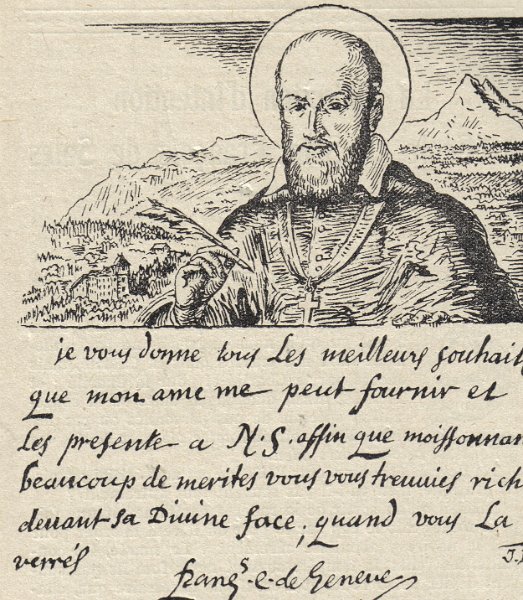 je vous donne tous Les meilleurs souhaits
que mon ame me peut fournir et
Les presente a N.S. affin que moissonnan
beaucoup de merites vous vous treuvies rich
devant sa Divine face, quand vous La
verrés
franç.s e. de Geneve